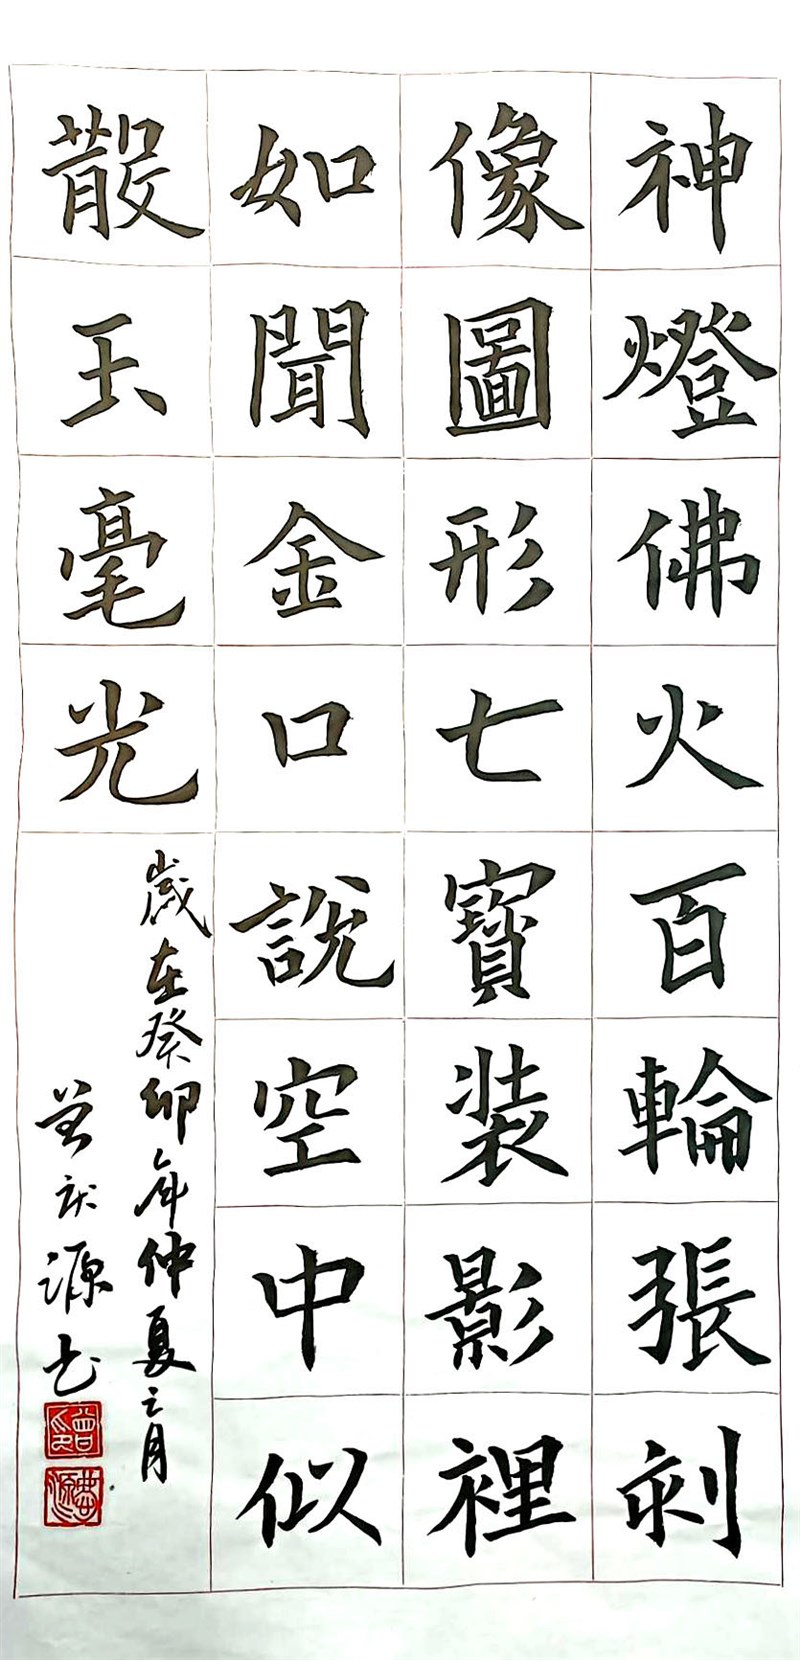 神燈佛火百輪張刻
像圖形七寶裝影裡
如聞金口說空中似
散玉毫光
歲在癸卯年仲夏之月
曾庆源书
曾印
慶源